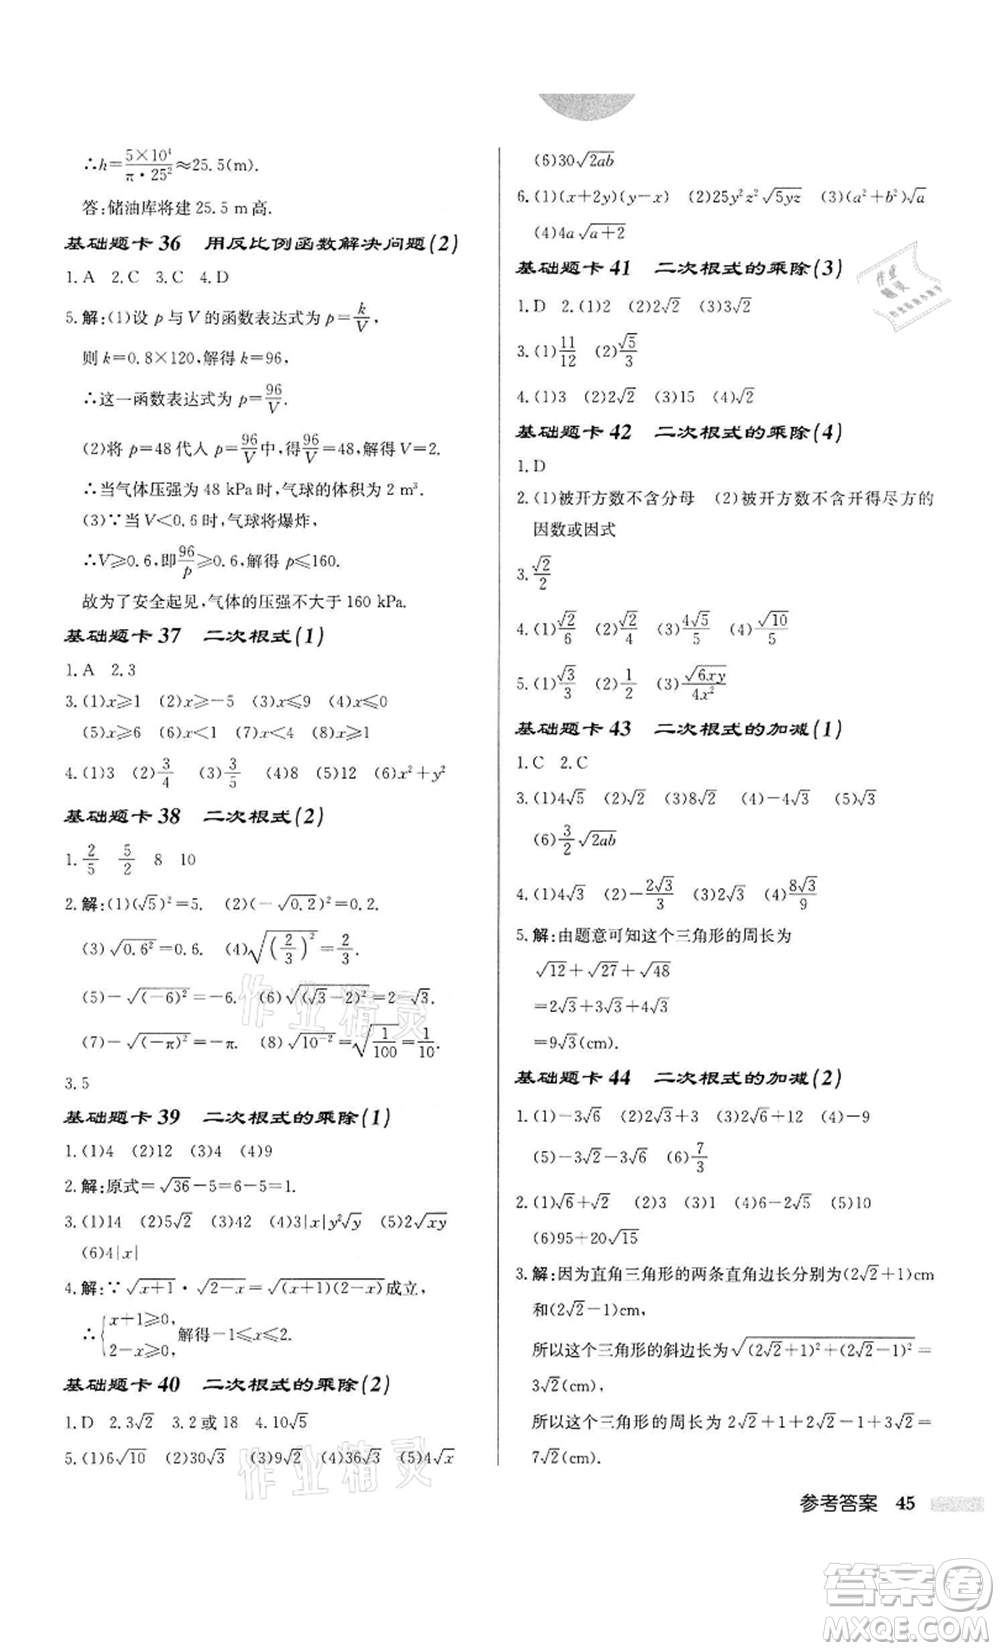 ∴h=5×10⁴/(π·25²)≈25.5(m).
答:储油库将建 25.5 m高.
基础题卡 36 用反比例函数解决问题(2)
1. A 2. C 3. C 4. D
5. 解:(1)设 p 与 V 的函数表达式为 p=k/V,
则 k=0.8×120,解得 k=96,
∴这一函数表达式为 p=96/V.
(2)将 p=48 代入 p=96/V中,得96/V=48,解得 V=2.
∴当气体压强为 48 kPa 时,气球的体积为 2 m³.
(3)∵当 V<0.6 时,气球将爆炸,
∴V≥0.6,即96/p≥0.6,解得 p≤160.
故为了安全起见,气体的压强不大于 160 kPa.
基础题卡 37 二次根式(1)
1. A 2. 3
3. (1)x≥1 (2)x≥-5 (3)x≤9 (4)x≤0
(5)x≥6 (6)x<1 (7)x<4 (8)x≥1
4. (1)3 (2)3/4 (3)3/5 (4)8 (5)12 (6)x²+y²
基础题卡 38 二次根式(2)
1. 2/5 5/2 8 10
2. 解:(1)(√5)²=5. (2)(-√0.2)²=0.2.
(3)√0.6²=0.6. (4)√(2/3)²=2/3.
(5)-√(-6)²=-6. (6)√(√3-2)²=2-√3.
(7)-√(-π)²=-π. (8)√10⁻²=√(1/100)=1/10.
3. 5
基础题卡 39 二次根式的乘除(1)
1. (1)4 (2)12 (3)4 (4)9
2. 解:原式=√36-5=6-5=1.
3. (1)14 (2)5√2 (3)42 (4)3|x|y²√y (5)2√xy
(6)4|x|
4. 解:∵√(x+1)·√(2-x)=√((x+1)(2-x))成立,
∴{x+1≥0, 2-x≥0, 解得-1≤x≤2.
基础题卡 40 二次根式的乘除(2)
1. D 2. 3√2 3. 2 或 18 4. 10√5
5. (1)6√10 (2)48√3 (3)9√2 (4)36√3 (5)4√x
(6)30√2ab
6. (1)(x+2y)(y-x) (2)25y²z²√5yz (3)(a²+b²)√a
(4)4a√(a+2)
基础题卡 41 二次根式的乘除(3)
1. D 2. (1)√2 (2)2√2 (3)2 (4)√2
3. (1)11/12 (2)√5/3
4. (1)3 (2)2√2 (3)15 (4)√2
基础题卡 42 二次根式的乘除(4)
1. D
2. (1)被开方数不含分母 (2)被开方数不含开得尽方的
因数或因式
3. √2/2
4. (1)√2/6 (2)√2/4 (3)4√5/5 (4)√10/5
5. (1)√3/3 (2)1/2 (3)√6xy/4x²
基础题卡 43 二次根式的加减(1)
1. C 2. C
3. (1)4√5 (2)6√2 (3)8√2 (4)-4√3 (5)2√3
(6)3/2√2ab
4. (1)√2 (2)-2√3/3 (3)2√3 (4)8√3/9
5. 解:由题意可知这个三角形的周长为
√12+√27+√48
=2√3+3√3+4√3
=9√3(cm).
基础题卡 44 二次根式的加减(2)
1. (1)-3√6 (2)√3+3 (3)2√6+12 (4)-9
(5)-3√2-3√6 (6)7/3
2. (1)√6+√2 (2)3 (3)1 (4)6-2√5 (5)10
(6)95+20√15
3. 解:因为直角三角形的两条直角边长分别为(2√2+1)cm
和(2√2-1)cm,
所以这个三角形的斜边长为√((2√2+1)²+(2√2-1)²)=
3√2(cm),
所以这个三角形的周长为 2√2+1+2√2-1+3√2=
7√2(cm).
参考答案 45
作业精灵
作业精灵
答案圈
MXQE.COM